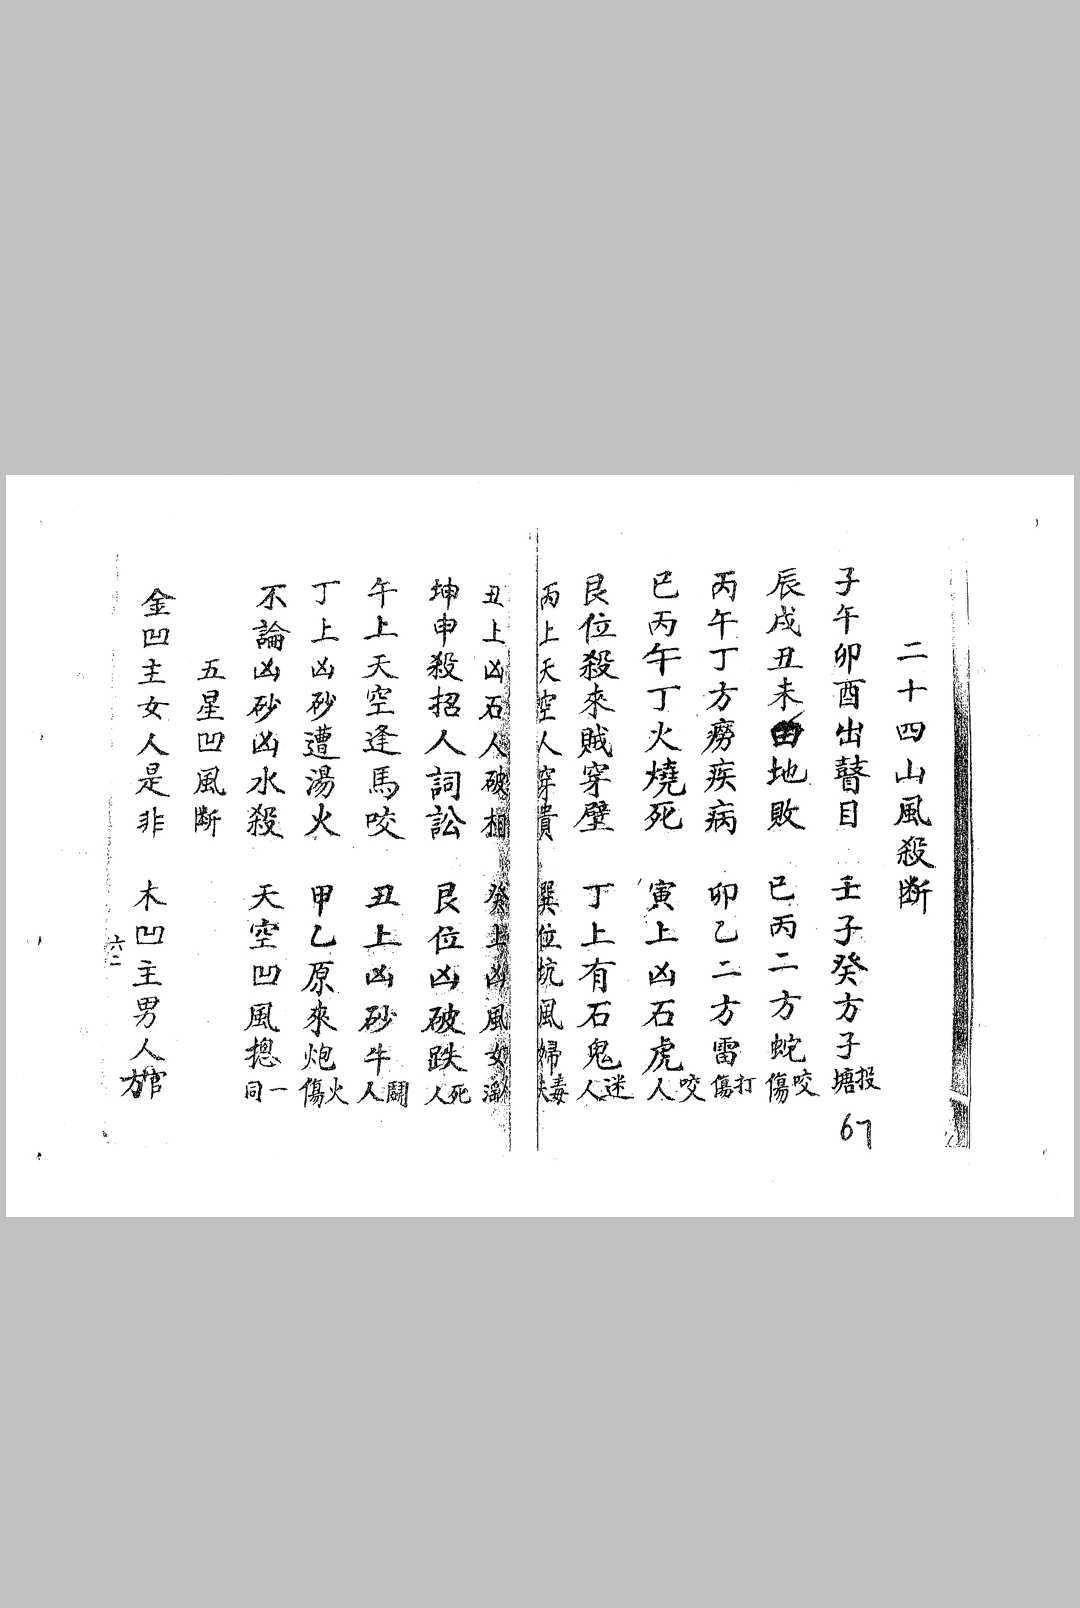 二十四山風殺断
子午卯酉出瞽目　壬子癸方子投塘
辰戌丑未田地敗　巳丙二方蛇咬傷
丙午丁方癆疾病　卯乙二方雷打傷
巳丙午丁火燒死　寅上凶石虎咬人
艮位殺來賊穿壁　丁上有石鬼迷人
丙上天空人穿　巽位坑風婦毒夫
丑上凶石人破相　癸上凶風女淫
坤申殺招人詞訟　艮位凶破跌死人
午上天空逢馬咬　丑上凶砂牛鬪人
丁上凶砂遭湯火　甲乙原來炮火傷
不論凶砂凶水殺　天空凹風摠一同
五星凹風断
金凹主女人是非　木凹主男人官方
六二
67